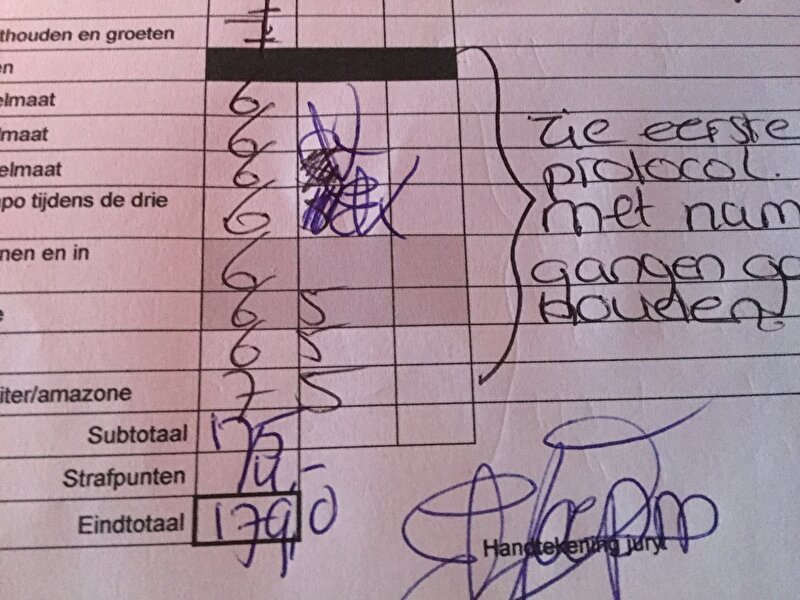 thouden en groeten 7
en
elmaat 6
lmaat 6
elmaat 6
po tijdens de drie 6
nen en in 6
e 6 5
6 5
iter/amazone 7 5
zie eerste
protocol.
met nam
gangen go
houden
Subtotaal 175
Strafpunten
Eindtotaal 179,0
Handtekening jury